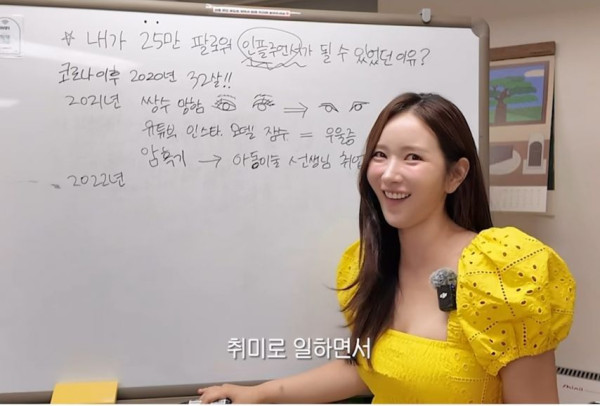 ☆ 내가 25만 팔로워 인플루언서가 될 수 있었던 이유?
코로나 이후 2020년 32살!!
2021년 쌍수 망함 ⇒
유튜브, 인스타, 모델 잠수 = 우울증
암흑기 → 아동미술 선생님 취업
2022년
취미로 일하면서